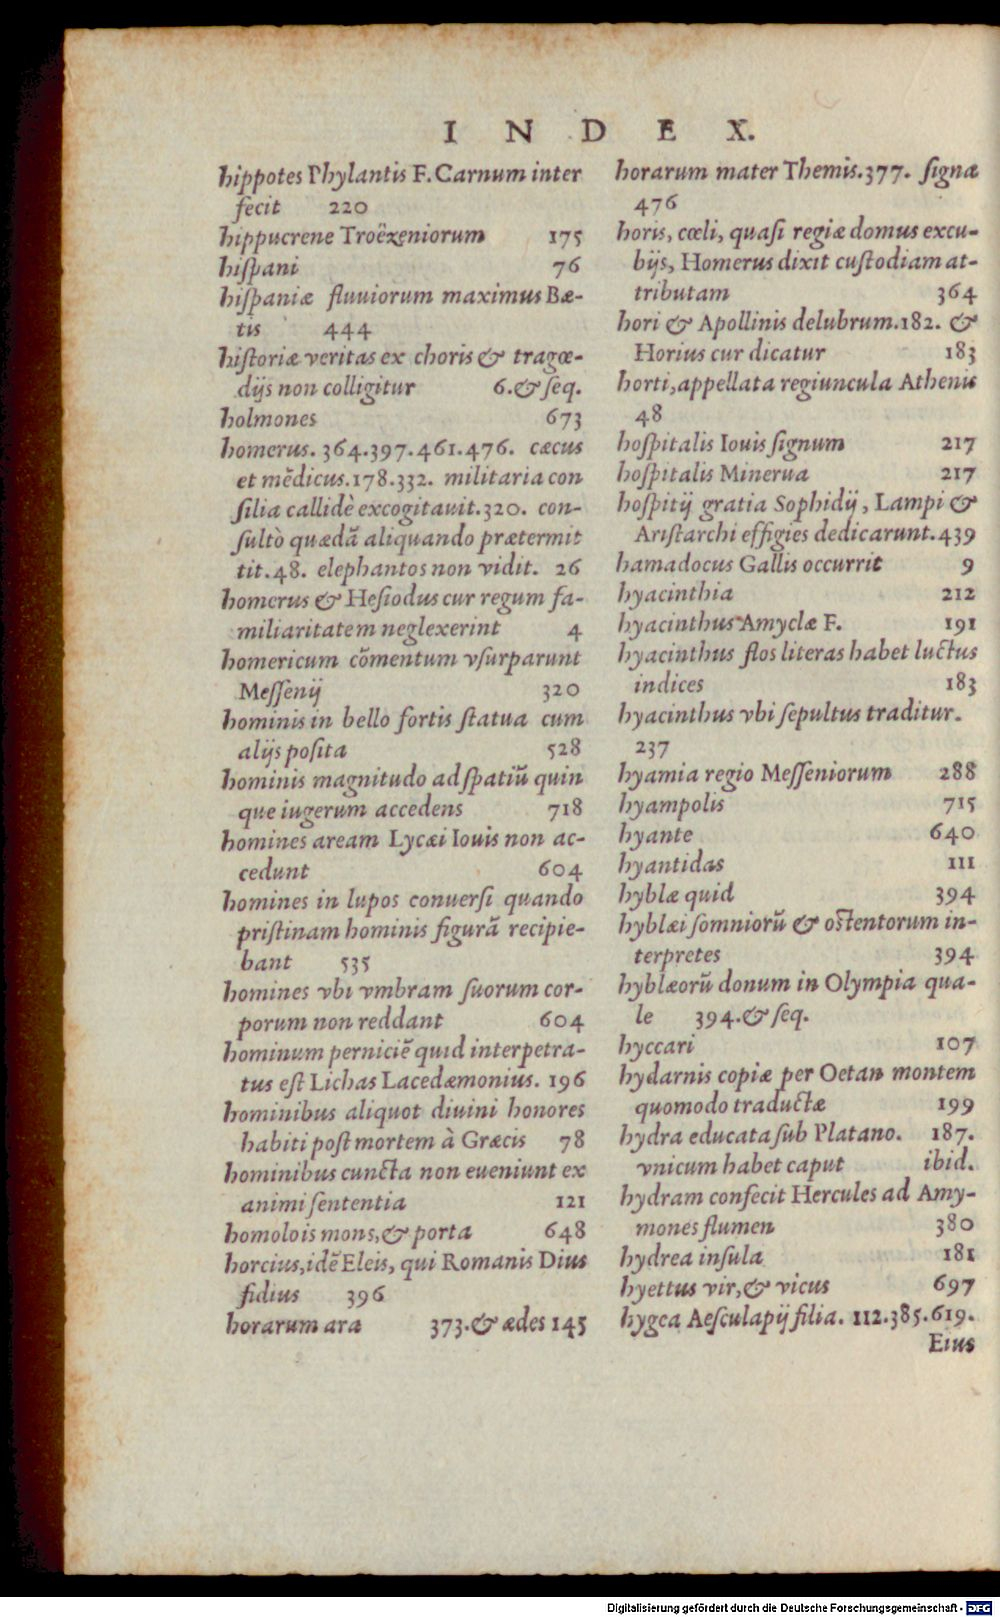 INDEX.
hippotes Phylantis F. Carnum inter
fecit 220
hippucrene Troëzeniorum 175
hiſpani 76
hiſpaniæ fluuiorum maximus Bæ-
tis 444
hiſtoriæ veritas ex choris & tragœ-
dijs non colligitur 6.& ſeq.
holmones 673
homerus. 364.397.461.476. cæcus
et mẽdicus.178.332. militaria con
ſilia callidè excogitauit.320. con-
ſultò quædã aliquando prætermit
tit.48. elephantos non vidit. 26
homerus & Heſiodus cur regum fa-
miliaritatem neglexerint 4
homericum cõmentum vſurparunt
Meſſenij 320
hominis in bello fortis ſtatua cum
alijs poſita 528
hominis magnitudo ad ſpatiũ quin
que iugerum accedens 718
homines aream Lycæi Iouis non ac-
cedunt 604
homines in lupos conuerſi quando
priſtinam hominis figurã recipie-
bant 535
homines vbi vmbram ſuorum cor-
porum non reddant 604
hominum perniciẽ quid interpetra-
tus eſt Lichas Lacedæmonius. 196
hominibus aliquot diuini honores
habiti poſt mortem à Græcis 78
hominibus cuncta non eueniunt ex
animi ſententia 121
homolois mons,& porta 648
horcius,idẽ Eleis, qui Romanis Dius
fidius 396
horarum ara 373.& ædes 145
horarum mater Themis.377. ſigna
476
horis, cœli, quaſi regiæ domus excu-
bijs, Homerus dixit cuſtodiam at-
tributam 364
hori & Apollinis delubrum.182. &
Horius cur dicatur 183
horti,appellata regiuncula Athenis
48
hoſpitalis Iouis ſignum 217
hoſpitalis Minerua 217
hoſpitij gratia Sophidij, Lampi &
Ariſtarchi effigies dedicarunt.439
hamadocus Gallis occurrit 9
hyacinthia 212
hyacinthus Amyclæ F. 191
hyacinthus flos literas habet luctus
indices 183
hyacinthus vbi ſepultus traditur.
237
hyamia regio Meſſeniorum 288
hyampolis 715
hyante 640
hyantidas 111
hyblæ quid 394
hyblæi ſomniorũ & oſtentorum in-
terpretes 394
hyblæorũ donum in Olympia qua-
le 394.& ſeq.
hyccari 107
hydarnis copiæ per Oetan montem
quomodo traductæ 199
hydra educata ſub Platano. 187.
vnicum habet caput ibid.
hydram confecit Hercules ad Amy-
mones flumen 380
hydrea inſula 181
hyettus vir,& vicus 697
hygea Aeſculapij filia. 112.385.619.
Eius
Digitalisierung gefördert durch die Deutsche Forschungsgemeinschaft - DFG